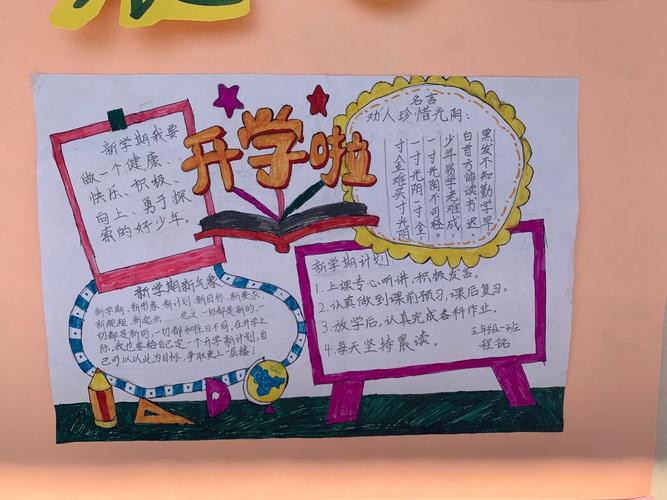 开学啦
新学期我要
做一个健康、
快乐、积极
向上、勇于探
索的好少年。
名言
劝人珍惜光阴:
黑发不知勤学早
白首方悔读书迟
少年易学老难成,
一寸光阴不可轻。
一寸光阴一寸金
寸金难买寸光阴
新学期新气象
新学期、新形象、新计划、新目标、新要求、
新规矩、新起点……总之,一切都是新的,一
切都是新的,一切都和往日不同,在开学之
际,我也要给自己定一个开学新计划,自
己可以以此为目标,争取更上一层楼!
新学期计划
1.上课专心听讲,积极发言。
2.认真做到课前预习,课后复习。
3.放学后,认真完成各科作业。
4.每天坚持晨读。
三年级一班
程铭